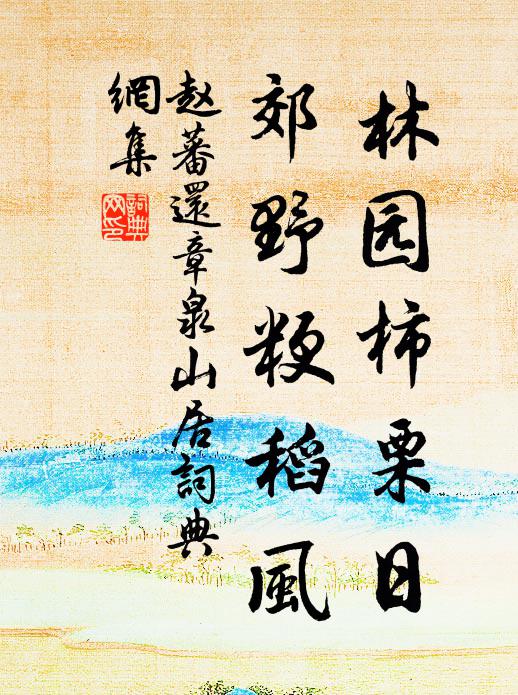 林园柿栗日
郊野粳稻風
赵蕃還章泉山居詞典
網集
詞典
网印